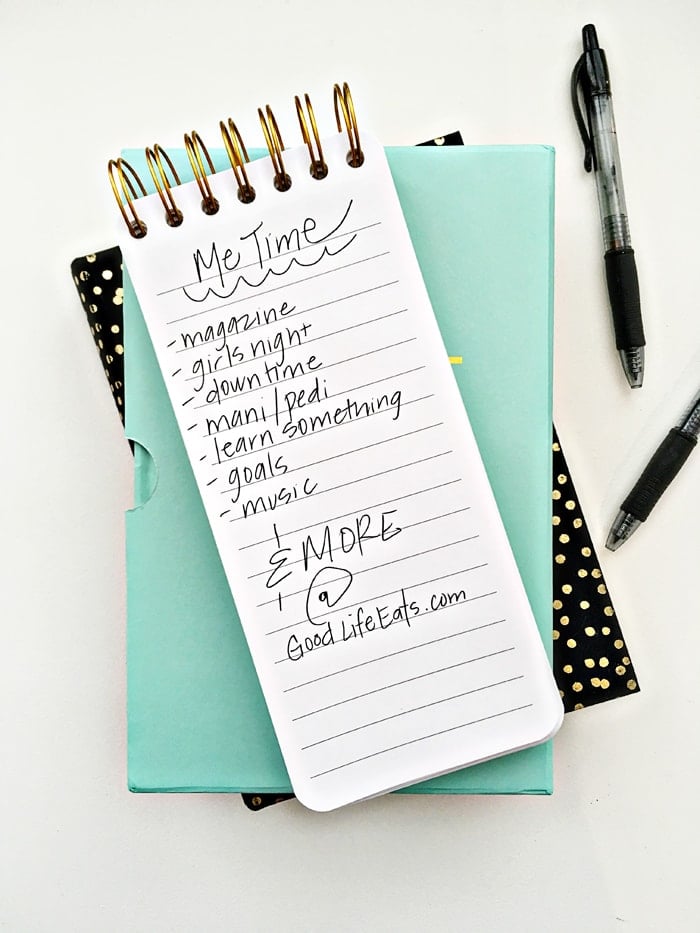 Me Time
- magazine
- girls night
- down time
- mani/pedi
- learn something
- goals
- music
& MORE
@
GoodLifeEats.com